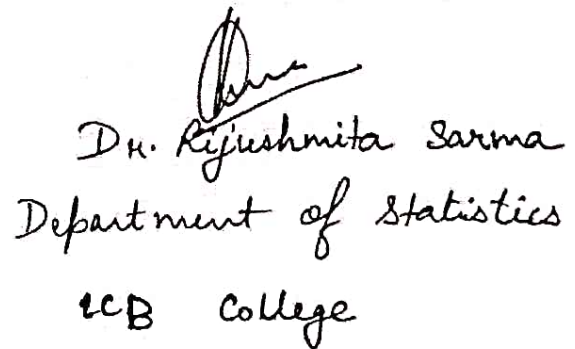 Dr. Rijushmita Sarma
Department of Statistics
LCB College